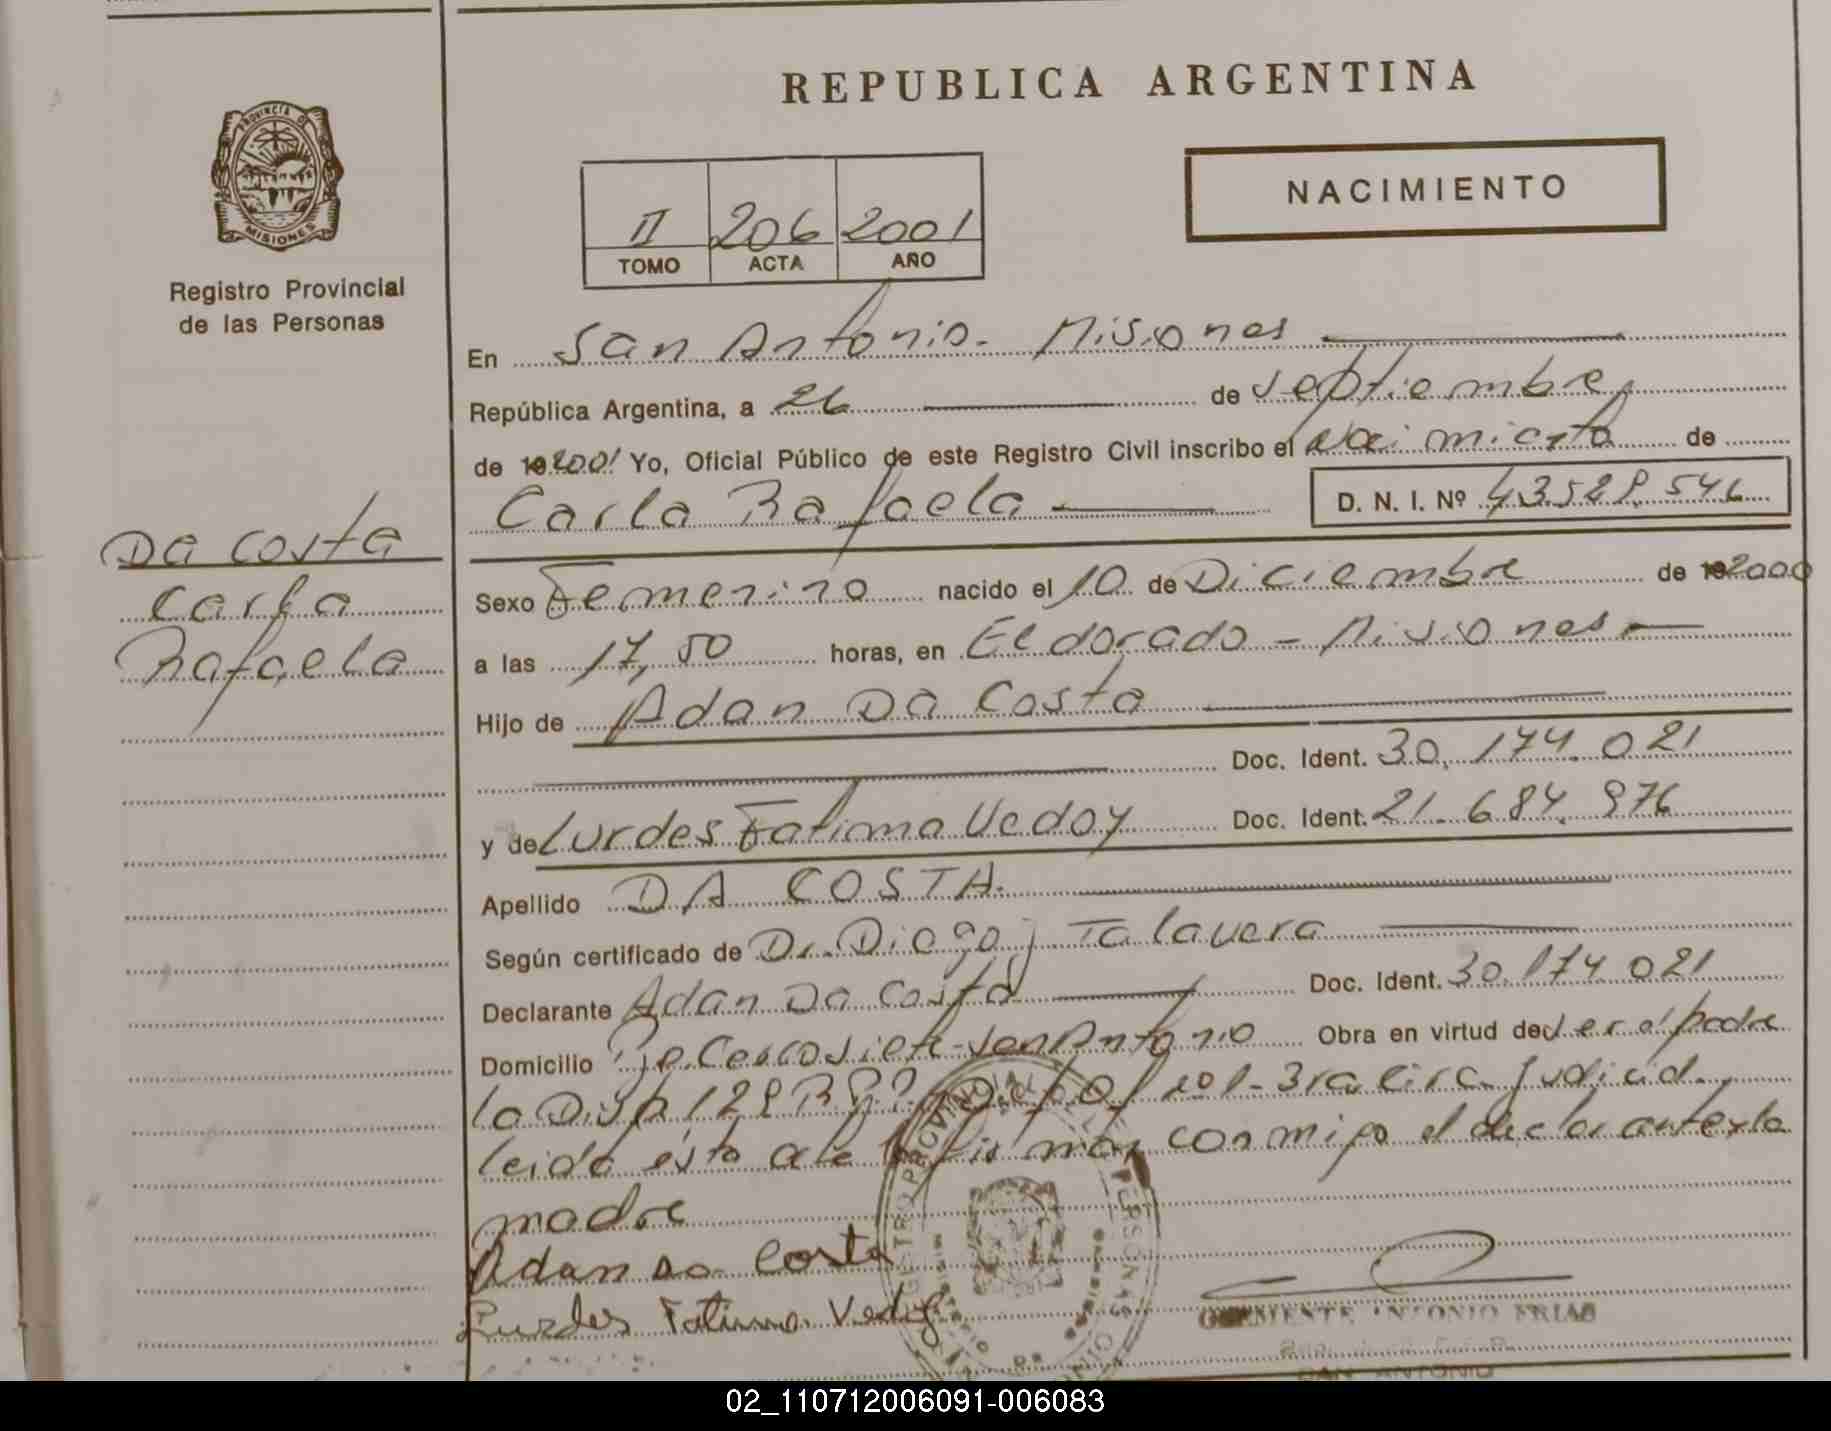 REPUBLICA ARGENTINA
PROVINCIA DE
MISIONES
Registro Provincial
de las Personas
NACIMIENTO
II 206 2001
TOMO ACTA AÑO
En San Antonio - Misiones
República Argentina, a 26 de septiembre
de 19 2001 Yo, Oficial Público de este Registro Civil inscribo el de
Carla Rafaela D. N. I. Nº 43528.546
Da Costa
Carla
Rafaela
Sexo Femenino nacido el 10 de Diciembre de 19 2000
a las 17,50 horas, en Eldorado - Misiones
Hijo de Adan Da Costa
Doc. Ident. 30.174.021
y de Lurdes Fatima Vedoy Doc. Ident. 21.684.976
Apellido DA COSTA
Según certificado de Dr. Diego J Talavera
Declarante Adan Da Costa Doc. Ident. 30.174.021
Domicilio San Antonio Obra en virtud de ser el padre
la Disp 128 Judicial.
leida esta acta firman conmigo el declarante y la
madre
Adan Da Costa
Lurdes Fatima Vedoy
ANTONIO FRIAS
SAN ANTONIO
02_110712006091-006083